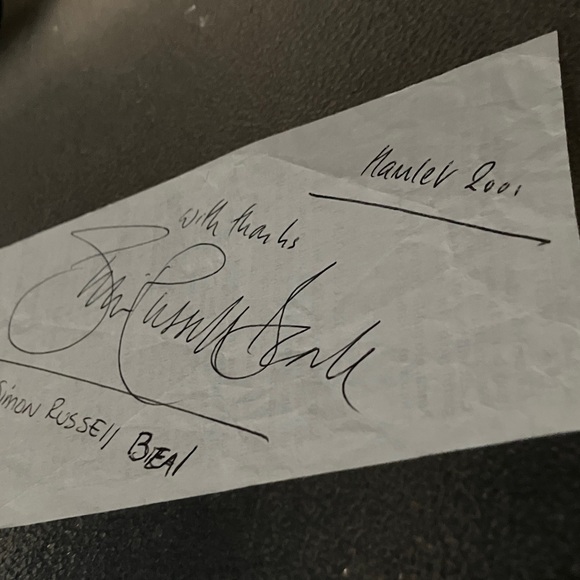 Hamlet 2001
with thanks
Simon Russell Beale
Simon RUSSEll BEAl